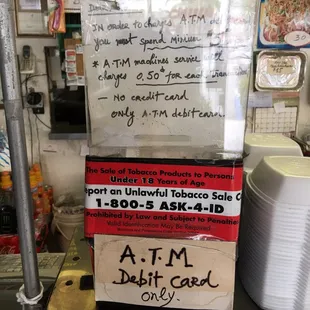 IN order to charge A.T.M
you must spend
* A.T.M machines service
charges 0.50 for each
- No credit card
only A.T.M debit card
The Sale of Tobacco Products to Persons
Under 18 Years of Age
eport an Unlawful Tobacco Sale C
1-800-5 ASK-4-ID
Prohibited by Law and Subject to Penalties
Valid Identification May Be Required
A.T.M
Debit card
only.